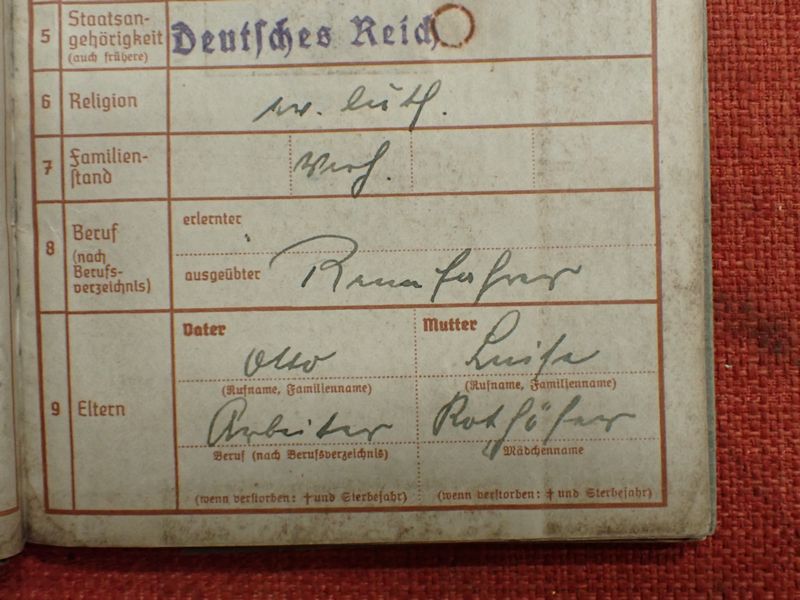 5 Staatsan-
gehörigkeit
(auch frühere)
Deutsches Reich
6 Religion
ev. luth.
7 Familien-
stand
verh.
8 Beruf
(nach
Berufs-
verzeichnis)
erlernter
ausgeübter Rennfahrer
9 Eltern
Vater
Otto
(Rufname, Familienname)
Arbeiter
Beruf (nach Berufsverzeichnis)
(wenn verstorben: † und Sterbejahr)
Mutter
Luise
(Rufname, Familienname)
Rothöfer
Mädchenname
(wenn verstorben: † und Sterbejahr)